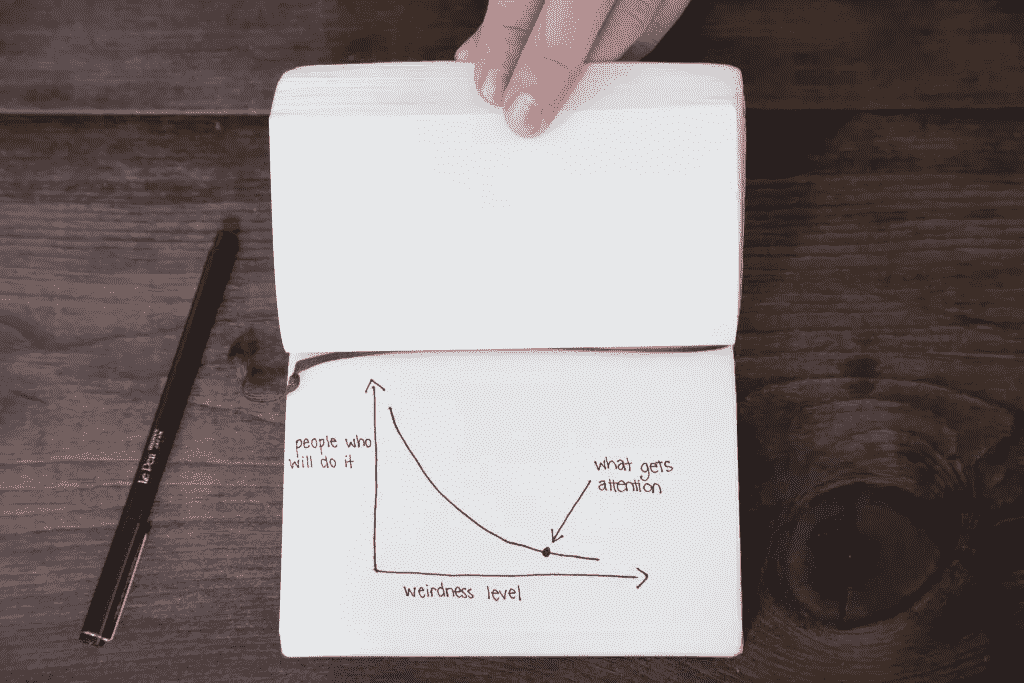 people who
will do it
what gets
attention
weirdness level
le Pen